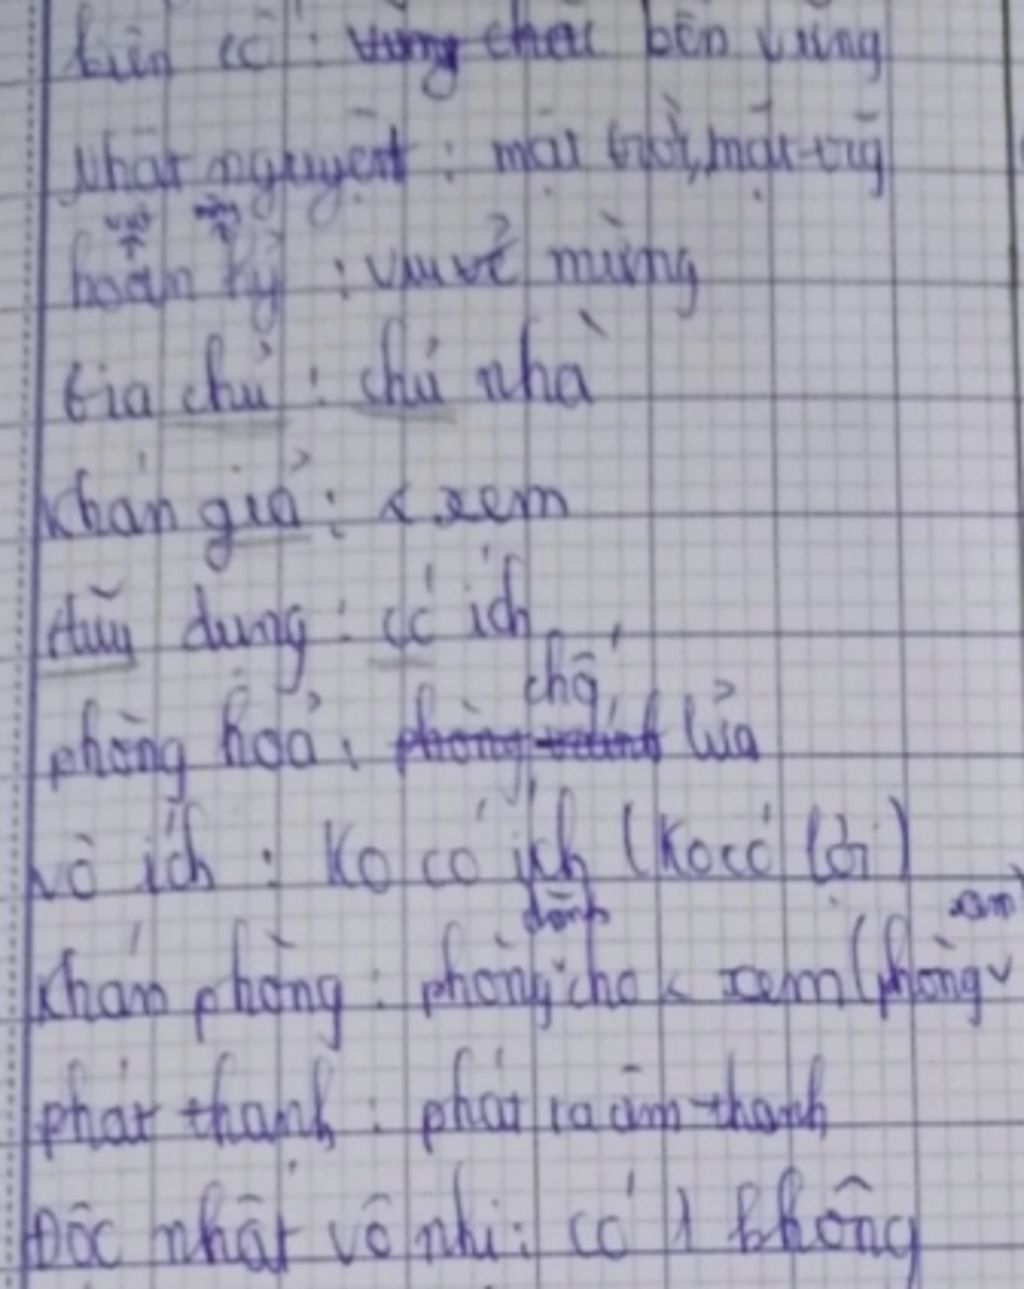 kiên cố : vững chắc bền vững
nhật nguyệt : mặt trời, mặt trăg
vui mừng
hoan hỷ : vui vẻ mừng
Gia chủ : chủ nhà
Khán giả : < xem
Hữu dụng : có ích
chố
phòng hoả : lửa
vô ích : Ko có ích (Ko có lợi)
dành
Khán phòng : phòng cho < xem (phòng xem
phát thanh : phát ra âm thanh
Độc nhất vô nhị : có 1 không